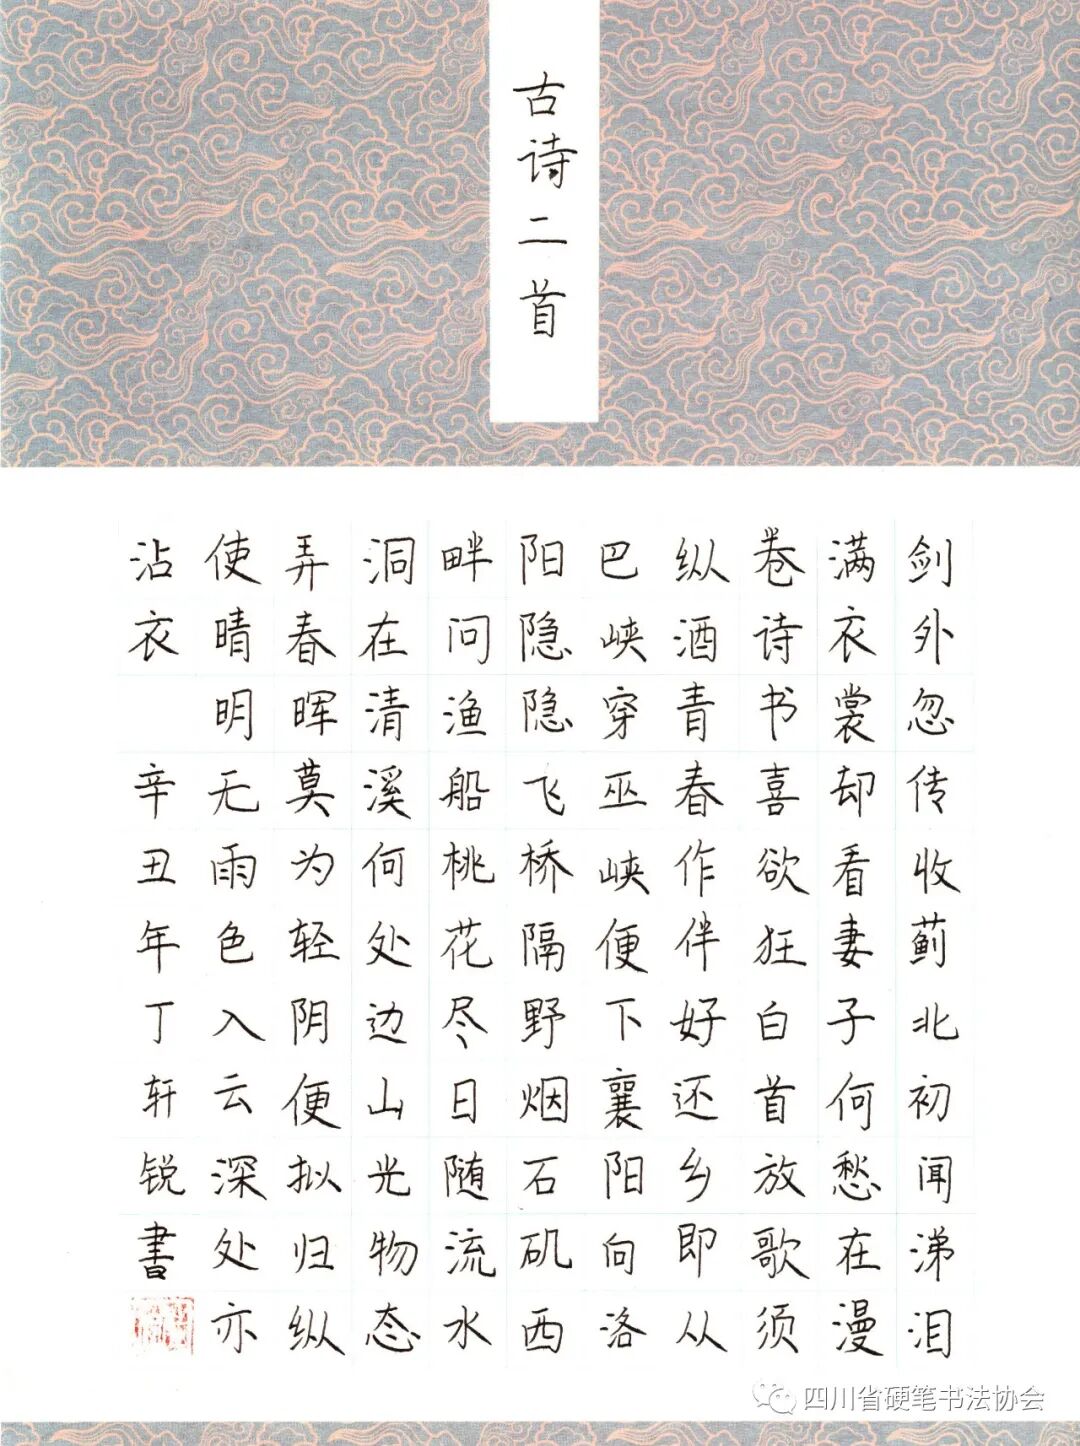 古诗二首
剑外忽传收蓟北初闻涕泪
满衣裳却看妻子何愁在漫
卷诗书喜欲狂白首放歌须
纵酒青春作伴好还乡即从
巴峡穿巫峡便下襄阳向洛
阳隐隐飞桥隔野烟石矶西
畔问渔船桃花尽日随流水
洞在清溪何处边山光物态
弄春晖莫为轻阴便拟归纵
使晴明无雨色入云深处亦
沾衣 辛丑年丁轩锐書
四川省硬笔书法协会